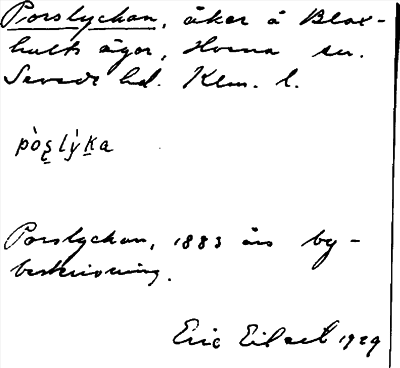 Porslyckan, åker å Blax-
hults ägor, Horna sn.
Sevede hd. Klm. l.
pòs̱lỳḵa
Porslyckan, 1883 års by-
beskrivning.
Eric 1929